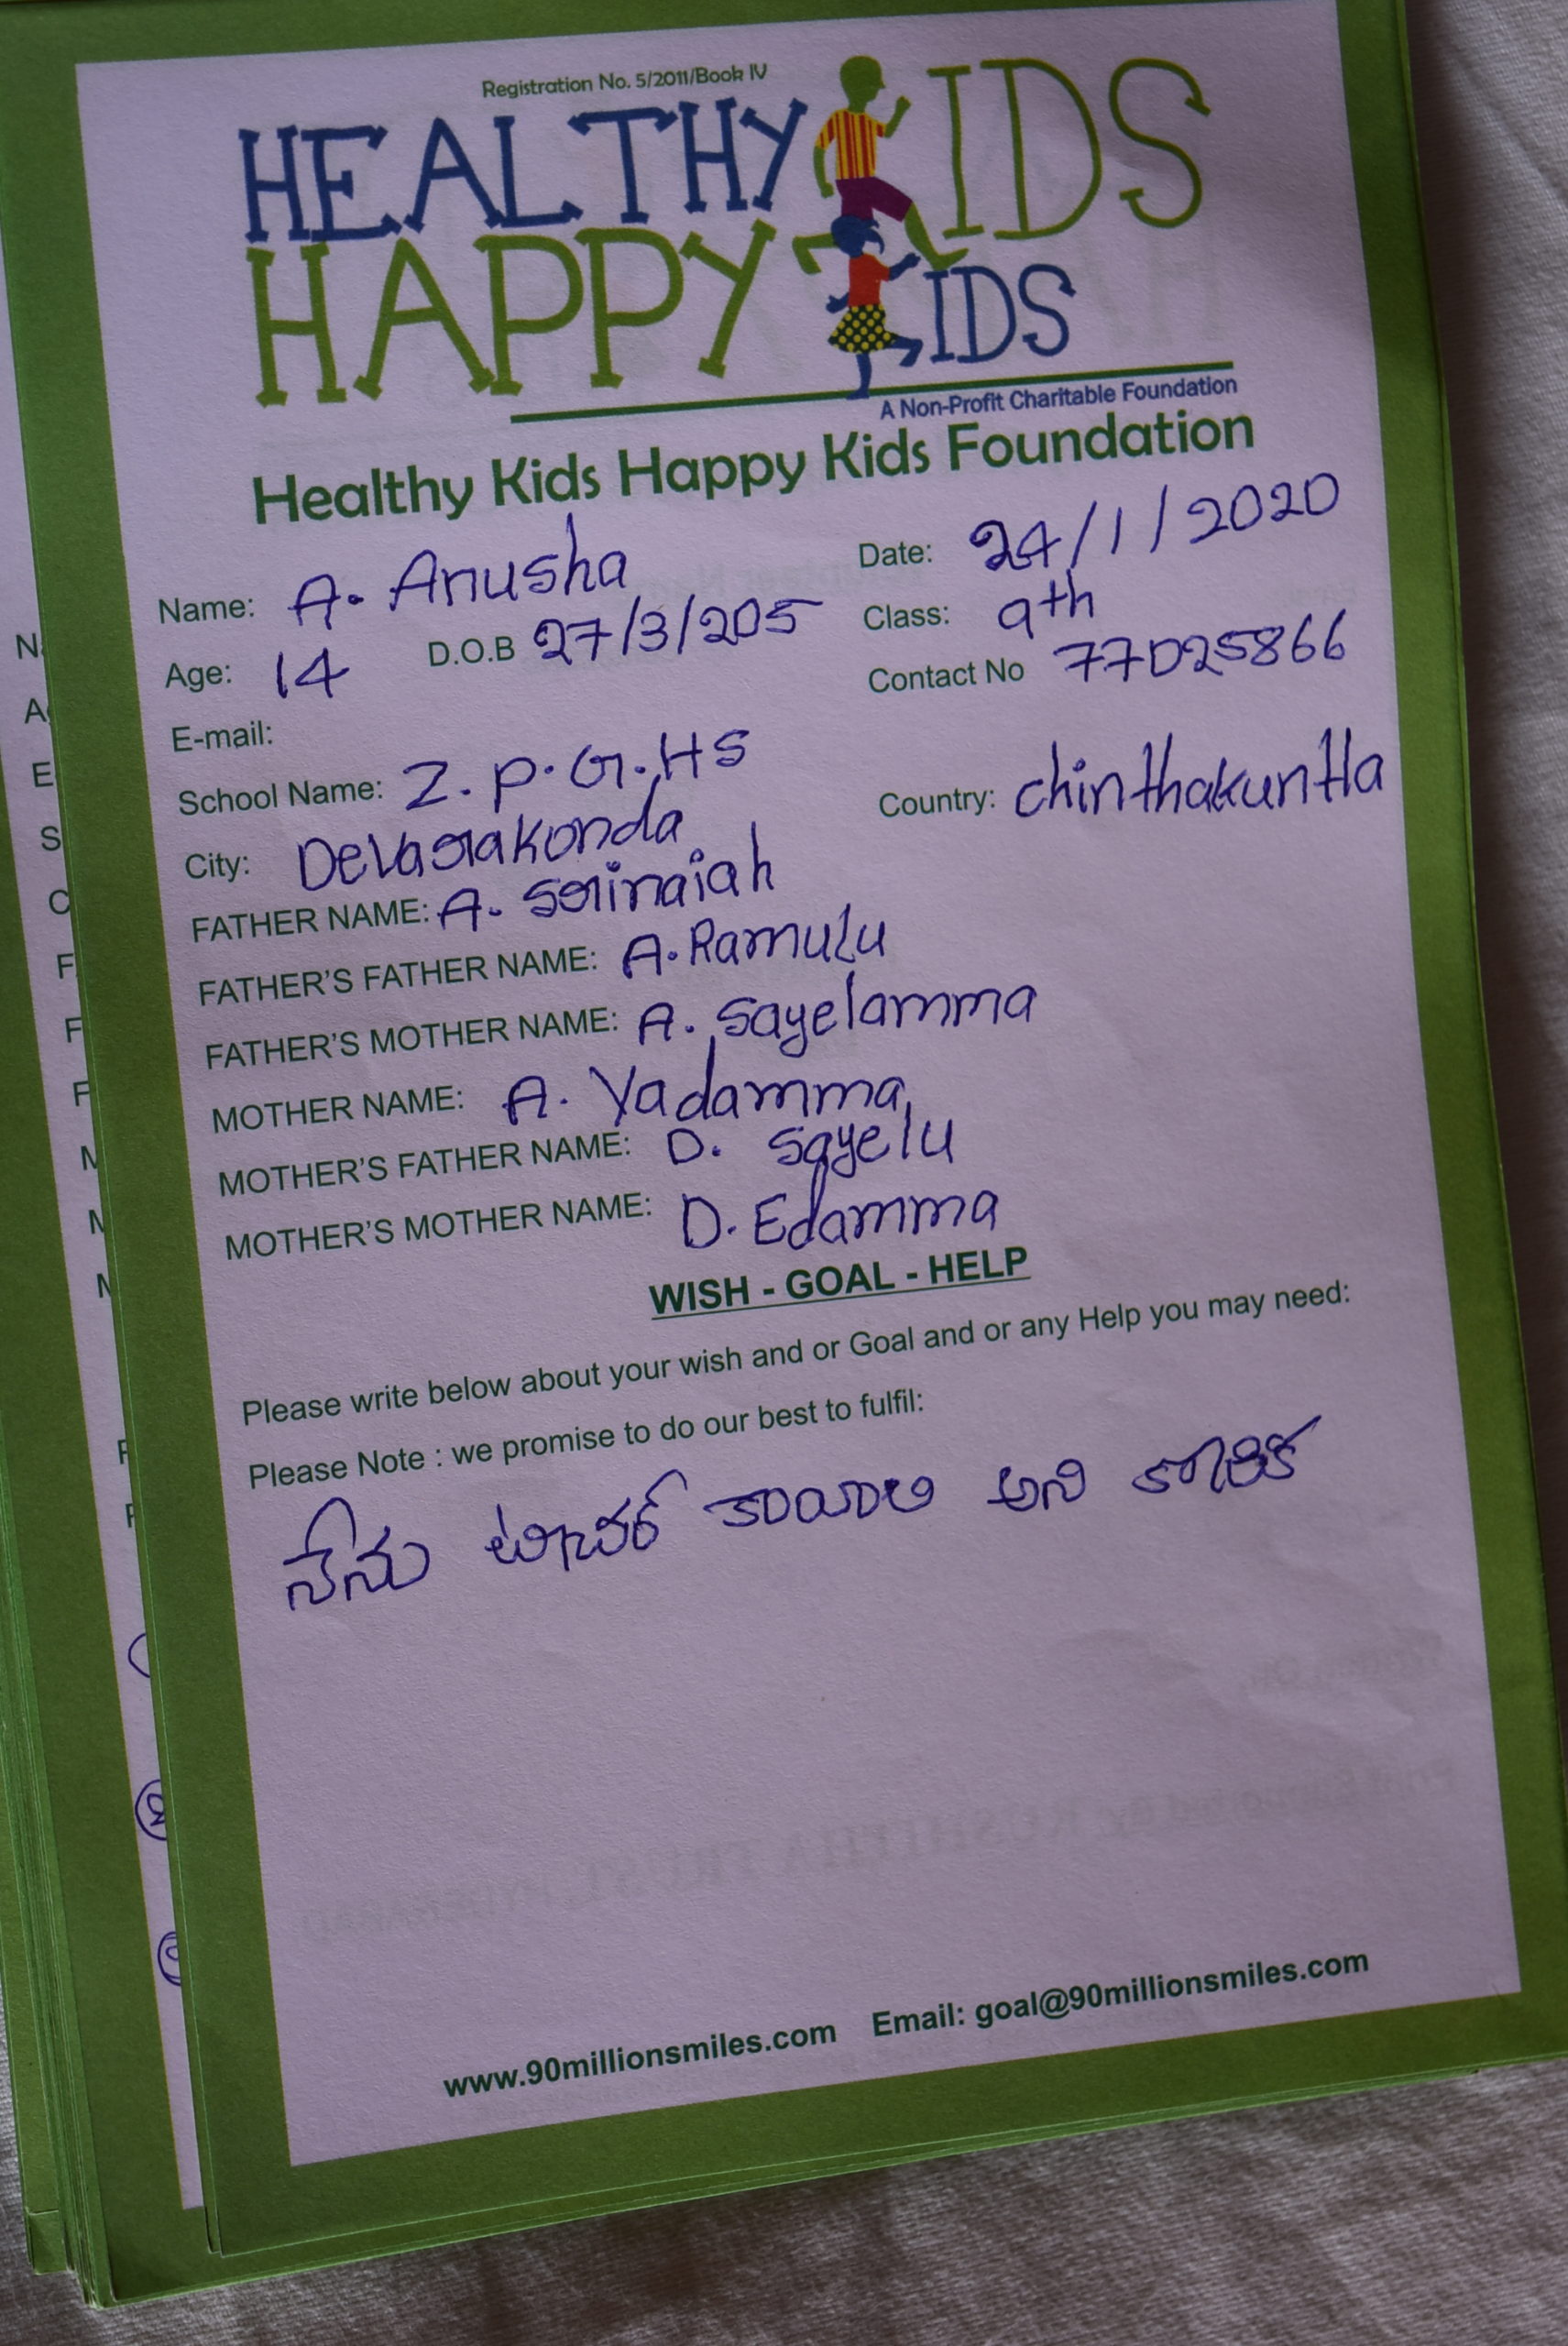 Registration No. 5/2011/Book IV
HEALTHY KIDS
HAPPY KIDS
A Non-Profit Charitable Foundation
Healthy Kids Happy Kids Foundation
Name: A. Anusha Date: 24/1/2020
Age: 14 D.O.B 27/3/205 Class: 9th
E-mail: Contact No 77025866
School Name: Z.P.G.HS
City: Devarakonda Country: chinthakuntla
FATHER NAME: A. Srinaiah
FATHER'S FATHER NAME: A. Ramulu
FATHER'S MOTHER NAME: A. Sayelamma
MOTHER NAME: A. Yadamma
MOTHER'S FATHER NAME: D. Sayelu
MOTHER'S MOTHER NAME: D. Edamma
WISH - GOAL - HELP
Please write below about your wish and or Goal and or any Help you may need:
Please Note : we promise to do our best to fulfil:
నేను టీచర్ కావాలి అని కోరిక
www.90millionsmiles.com Email: goal@90millionsmiles.com